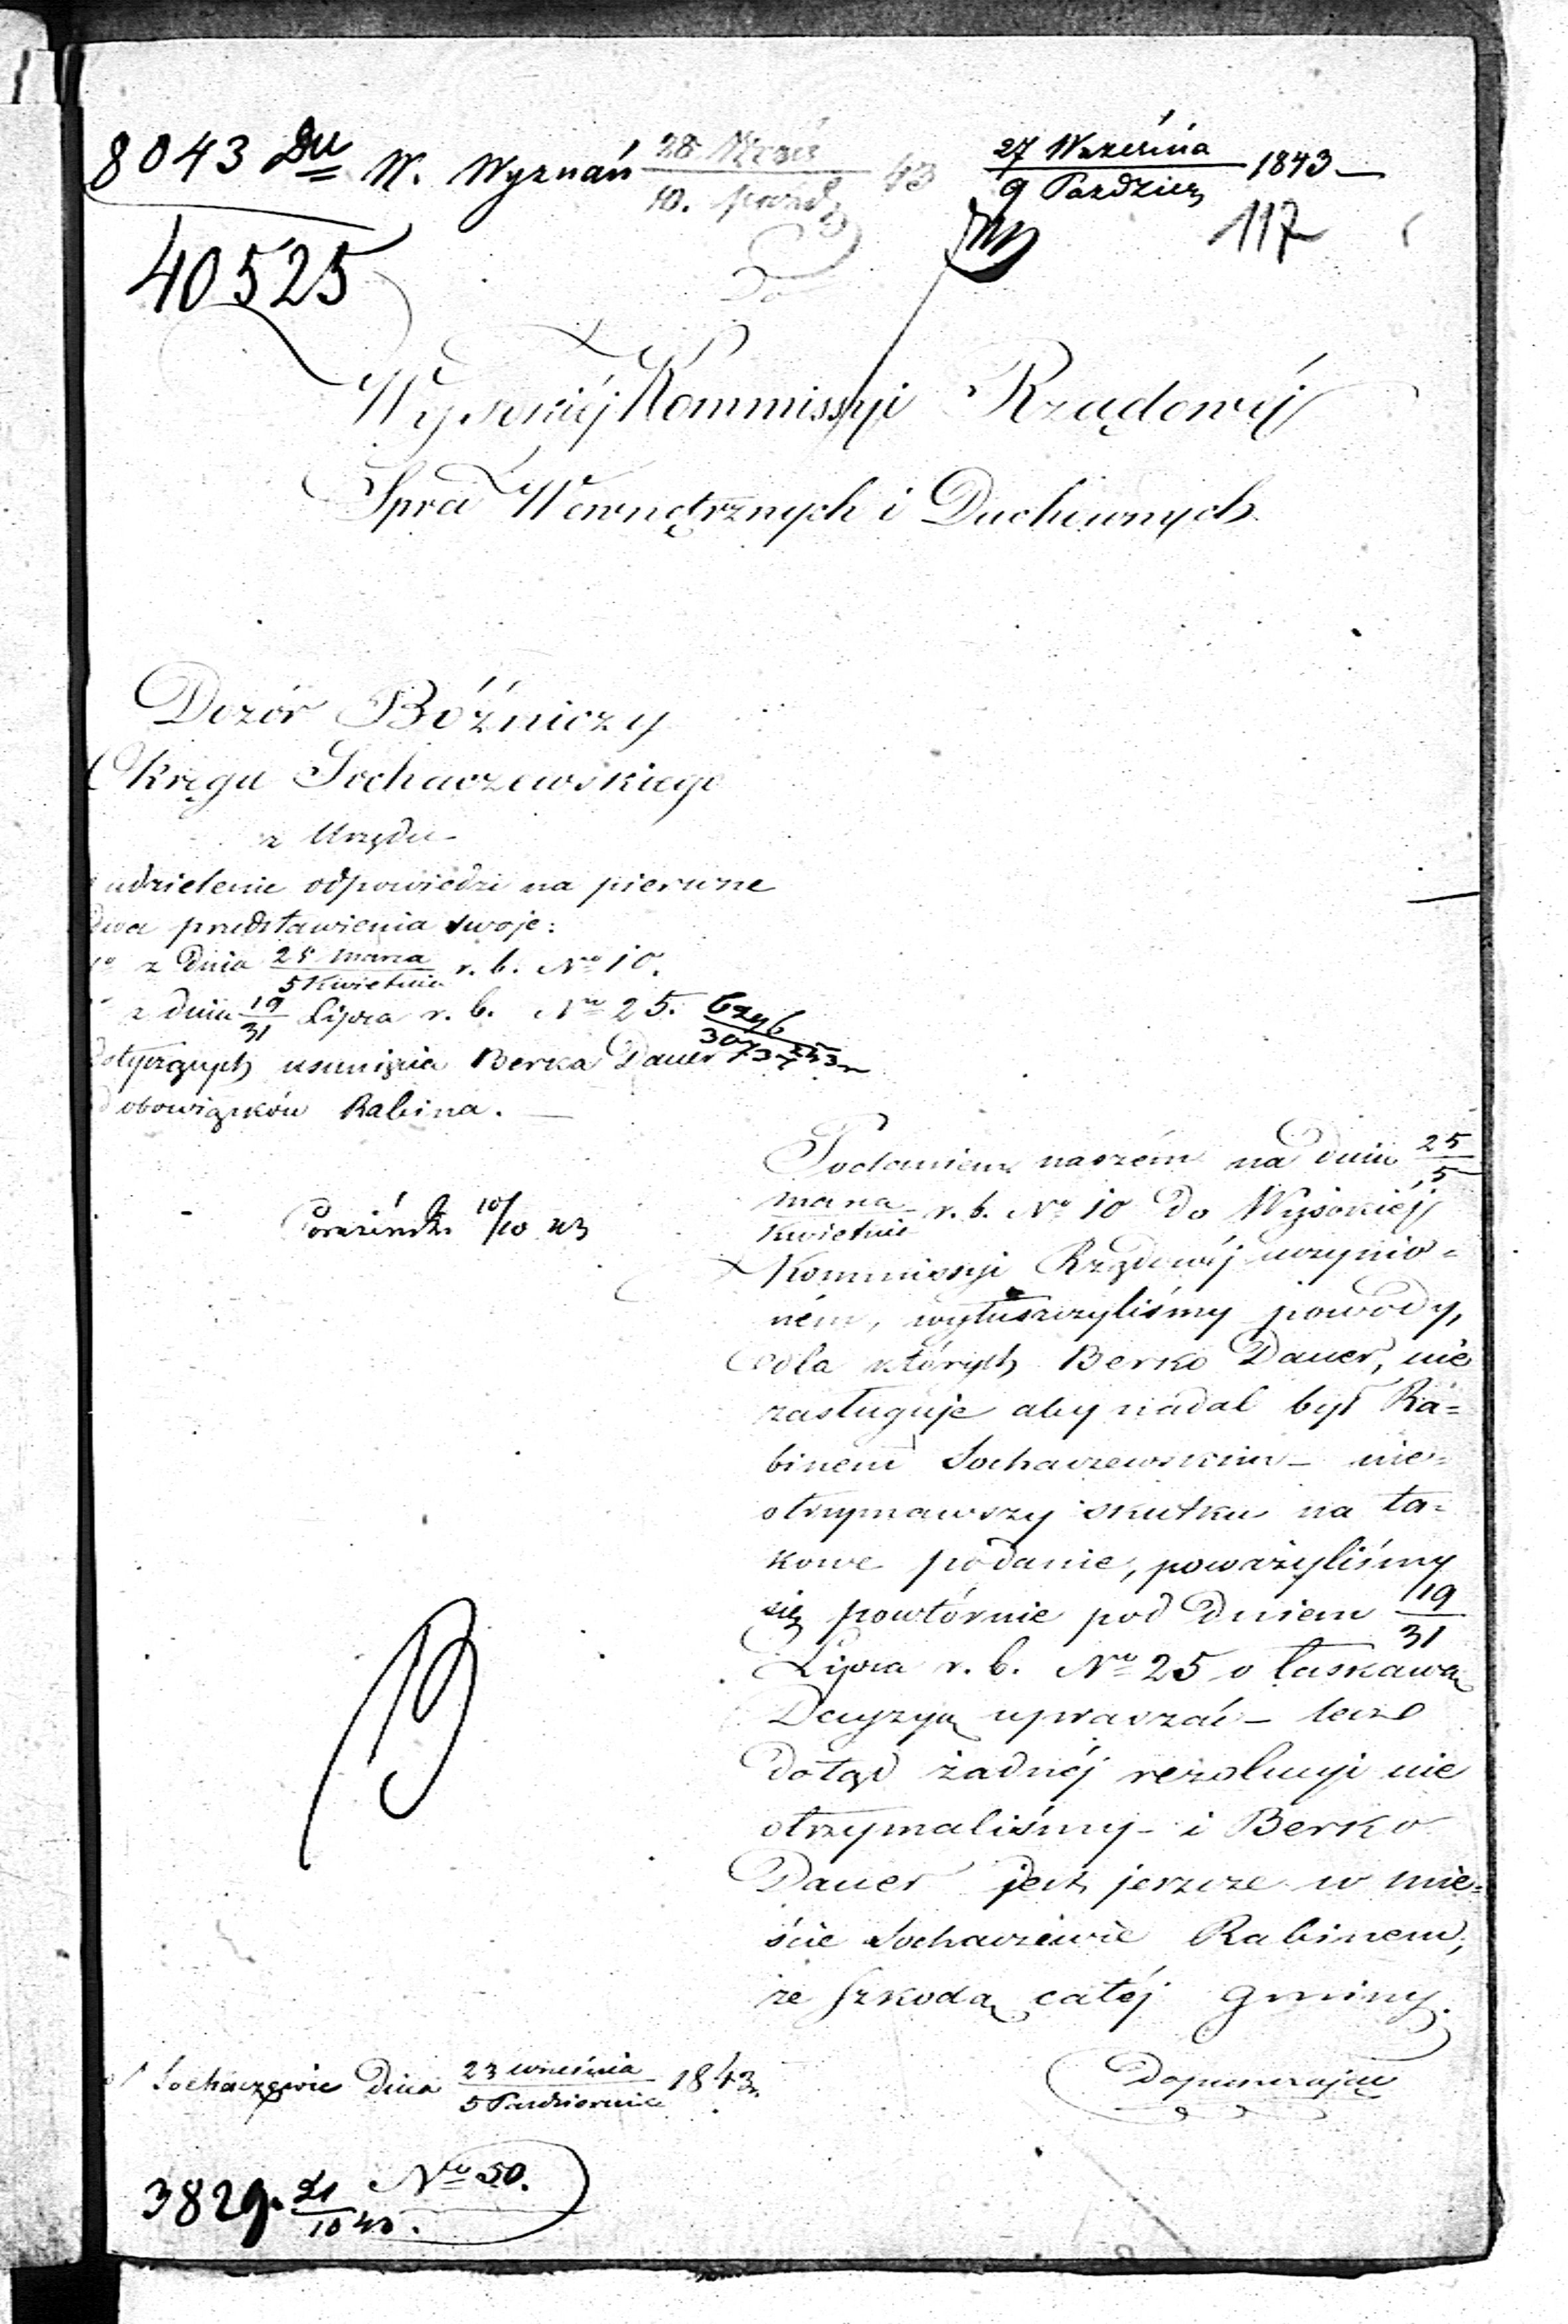 8043 Du W. Wyznań 28 Wrześ 43 27 Września 1843
10. paźd 9 Paździer
40525 117
Do
Wysokiéj Kommissyi Rządowéj
Spraw Wewnętrznych i Duchownych
Dozór Bóźniczy
Okręgu Sochaczewskiego
z Urzędu
udzielenie odpowiedzi na pierwsze
dwa przedstawienia swoje:
1o z dnia 25 marca r. b. No 10.
5 Kwietnia
z dnia 19 Lipca r. b. No 25.
31
dotyczących usunięcia Berka Dauer
od obowiązków Rabina.
Podaniem naszém na dniu 25
5
marca r. b. No 10 do Wysokiéj
kwietnia
Kommissyi Rządowéj uczynio=
ném, wyłuszczyliśmy powody,
dla których Berko Dauer, nie
zasługuje aby nadal był Ra=
binem Sochaczewskim – nie=
otrzymawszy skutku na ta=
kowe podanie, poważyliśmy
się powtórnie pod dniem 19
31
Lipca r. b. No 25 o łaskawą
Decyzyą upraszać – lecz
dotąd żadnéj rezolucyi nie
otrzymaliśmy – i Berko
Dauer jest jeszcze w mie=
ście Sochaczewie Rabinem,
ze szkodą całéj gminy.
Dopuszczając
w Sochaczewie dnia 23 września 1843
5 Października
No 50.
3829. 21
10 43.